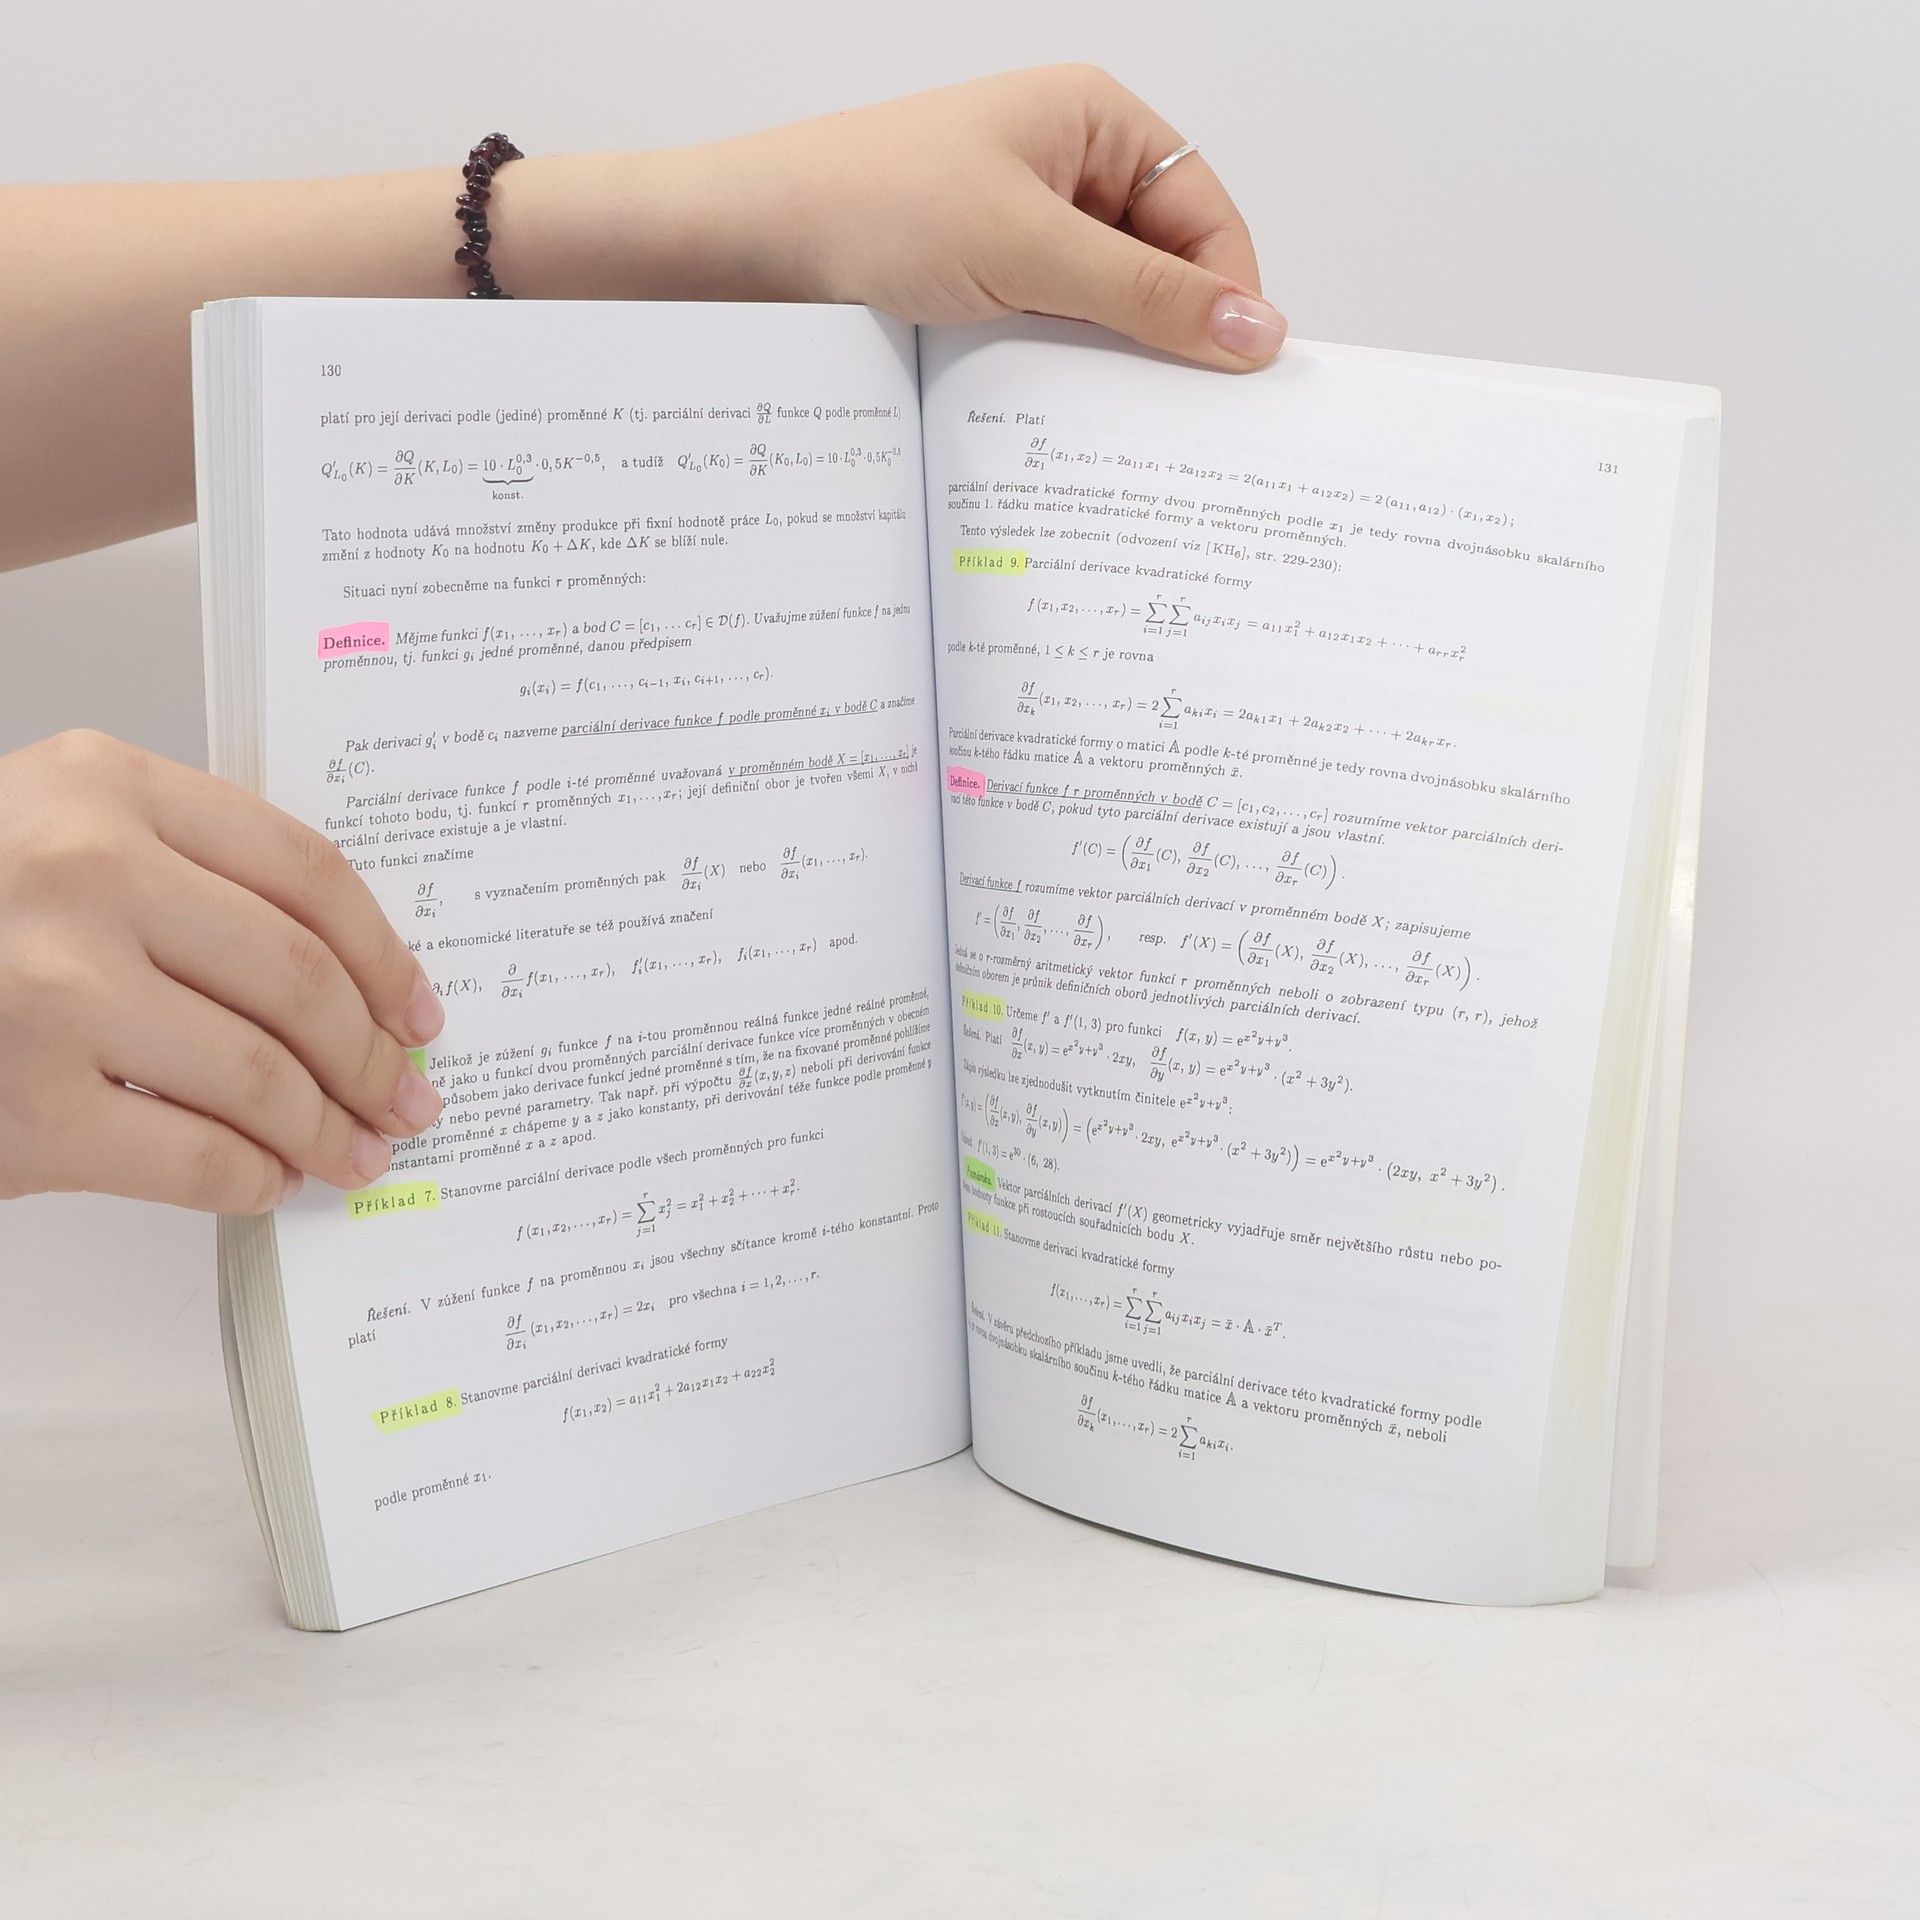 130
platí pro její derivaci podle (jediné) proměnné K (tj. parciální derivaci ∂Q/∂L funkce Q podle proměnné L)
Q′_{L₀}(K) = ∂Q/∂K (K, L₀) = 10 · L₀^{0,3} · 0,5K^{−0,5}, a tudíž Q′_{L₀}(K₀) = ∂Q/∂K (K₀, L₀) = 10 · L₀^{0,3} · 0,5K₀^{−0,5}.
konst.
Tato hodnota udává množství změny produkce při fixní hodnotě práce L₀, pokud se množství kapitálu
změní z hodnoty K₀ na hodnotu K₀ + ΔK, kde ΔK se blíží nule.
Situaci nyní zobecněme na funkci r proměnných:
Definice. Mějme funkci f(x₁, …, x_r) a bod C = [c₁, … c_r] ∈ D(f). Uvažujme zúžení funkce f na jednu
proměnnou, tj. funkci g_i jedné proměnné, danou předpisem
g_i(x_i) = f(c₁, …, c_{i−1}, x_i, c_{i+1}, …, c_r).
Pak derivaci g′_i v bodě c_i nazveme parciální derivace funkce f podle proměnné x_i v bodě C a značíme
∂f/∂x_i (C).
Parciální derivace funkce f podle i-té proměnné uvažovaná v proměnném bodě X = [x₁, …, x_r] je
funkcí tohoto bodu, tj. funkcí r proměnných x₁, …, x_r; její definiční obor je tvořen všemi X, v nichž
parciální derivace existuje a je vlastní.
Tuto funkci značíme
∂f/∂x_i, s vyznačením proměnných pak ∂f/∂x_i (X) nebo ∂f/∂x_i (x₁, …, x_r).
ké a ekonomické literatuře se též používá značení
∂_i f(X), ∂/∂x_i f(x₁, …, x_r), f′_i(x₁, …, x_r), f_i(x₁, …, x_r) apod.
Jelikož je zúžení g_i funkce f na i-tou proměnnou reálná funkce jedné reálné proměnné,
ně jako u funkcí dvou proměnných parciální derivace funkce více proměnných v obecném
působem jako derivace funkcí jedné proměnné s tím, že na fixované proměnné pohlížíme
ty nebo pevné parametry. Tak např. při výpočtu ∂f/∂x (x, y, z) neboli při derivování funkce
podle proměnné x chápeme y a z jako konstanty, při derivování téže funkce podle proměnné y
nstantami proměnné x a z apod.
Příklad 7. Stanovme parciální derivace podle všech proměnných pro funkci
f(x₁, x₂, …, x_r) = ∑_{j=1}^{r} x_j² = x₁² + x₂² + ⋯ + x_r².
Řešení. V zúžení funkce f na proměnnou x_i jsou všechny sčítance kromě i-tého konstantní. Proto
platí
∂f/∂x_i (x₁, x₂, …, x_r) = 2x_i pro všechna i = 1, 2, …, r.
Příklad 8. Stanovme parciální derivaci kvadratické formy
f(x₁, x₂) = a₁₁x₁² + 2a₁₂x₁x₂ + a₂₂x₂²
podle proměnné x₁.
131
Řešení. Platí
∂f/∂x₁ (x₁, x₂) = 2a₁₁x₁ + 2a₁₂x₂ = 2(a₁₁x₁ + a₁₂x₂) = 2 (a₁₁, a₁₂) · (x₁, x₂);
parciální derivace kvadratické formy dvou proměnných podle x₁ je tedy rovna dvojnásobku skalárního
součinu 1. řádku matice kvadratické formy a vektoru proměnných.
Tento výsledek lze zobecnit (odvození viz [KH₆], str. 229-230):
Příklad 9. Parciální derivace kvadratické formy
f(x₁, x₂, …, x_r) = ∑_{i=1}^{r} ∑_{j=1}^{r} a_{ij}x_ix_j = a₁₁x₁² + a₁₂x₁x₂ + ⋯ + a_{rr}x_r²
podle k-té proměnné, 1 ≤ k ≤ r je rovna
∂f/∂x_k (x₁, x₂, …, x_r) = 2 ∑_{i=1}^{r} a_{ki}x_i = 2a_{k1}x₁ + 2a_{k2}x₂ + ⋯ + 2a_{kr}x_r.
Parciální derivace kvadratické formy o matici 𝔸 podle k-té proměnné je tedy rovna dvojnásobku skalárního
součinu k-tého řádku matice 𝔸 a vektoru proměnných x̄.
Definice. Derivací funkce f r proměnných v bodě C = [c₁, c₂, …, c_r] rozumíme vektor parciálních deri-
vací této funkce v bodě C, pokud tyto parciální derivace existují a jsou vlastní.
f′(C) = (∂f/∂x₁ (C), ∂f/∂x₂ (C), …, ∂f/∂x_r (C)).
Derivací funkce f rozumíme vektor parciálních derivací v proměnném bodě X; zapisujeme
f′ = (∂f/∂x₁, ∂f/∂x₂, …, ∂f/∂x_r), resp. f′(X) = (∂f/∂x₁ (X), ∂f/∂x₂ (X), …, ∂f/∂x_r (X)).
Jedná se o r-rozměrný aritmetický vektor funkcí r proměnných neboli o zobrazení typu (r, r), jehož
definičním oborem je průnik definičních oborů jednotlivých parciálních derivací.
Příklad 10. Určeme f′ a f′(1, 3) pro funkci f(x, y) = e^{x²y+y³}.
Řešení. Platí ∂f/∂x (x, y) = e^{x²y+y³} · 2xy, ∂f/∂y (x, y) = e^{x²y+y³} · (x² + 3y²).
Zápis výsledku lze zjednodušit vytknutím činitele e^{x²y+y³}:
f′(x, y) = (∂f/∂x (x, y), ∂f/∂y (x, y)) = (e^{x²y+y³} · 2xy, e^{x²y+y³} · (x² + 3y²)) = e^{x²y+y³} · (2xy, x² + 3y²).
f′(1, 3) = e³⁰ · (6, 28).
Poznámka. Vektor parciálních derivací f′(X) geometricky vyjadřuje směr největšího růstu nebo po-
hodnoty funkce při rostoucích souřadnicích bodu X.
Příklad 11. Stanovme derivaci kvadratické formy
f(x₁, …, x_r) = ∑_{i=1}^{r} ∑_{j=1}^{r} a_{ij}x_ix_j = x̄ · 𝔸 · x̄ᵀ.
Řešení. V závěru předchozího příkladu jsme uvedli, že parciální derivace této kvadratické formy podle
rovna dvojnásobku skalárního součinu k-tého řádku matice 𝔸 a vektoru proměnných x̄, neboli
∂f/∂x_k (x₁, …, x_r) = 2 ∑_{i=1}^{r} a_{ki}x_i.